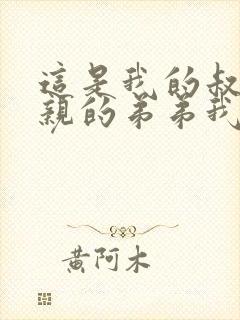 這是我的叔
親的弟弟我
黃阿木